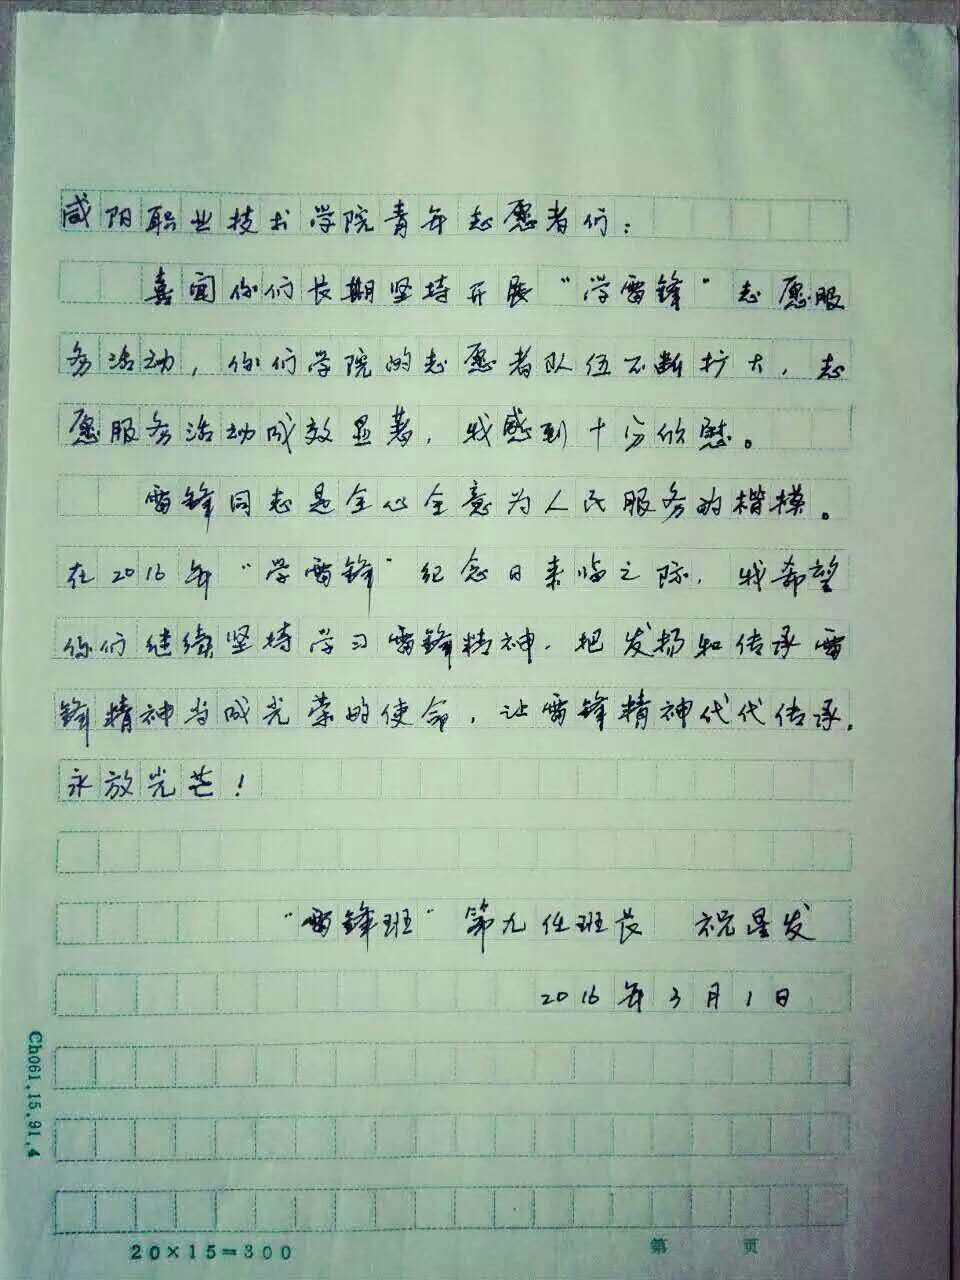 咸阳职业技术学院青年志愿者们：
喜闻你们长期坚持开展“学雷锋”志愿服
务活动，你们学院的志愿者队伍不断扩大，志
愿服务活动成效显著，我感到十分欣慰。
雷锋同志是全心全意为人民服务的楷模。
在2016年“学雷锋”纪念日来临之际，我希望
你们继续坚持学习雷锋精神，把发扬和传承雷
锋精神当成光荣的使命，让雷锋精神代代传承，
永放光芒！
“雷锋班”第九任班长 祝是发
2016年3月1日
Ch061.15.91.4
20×15=300
第 页